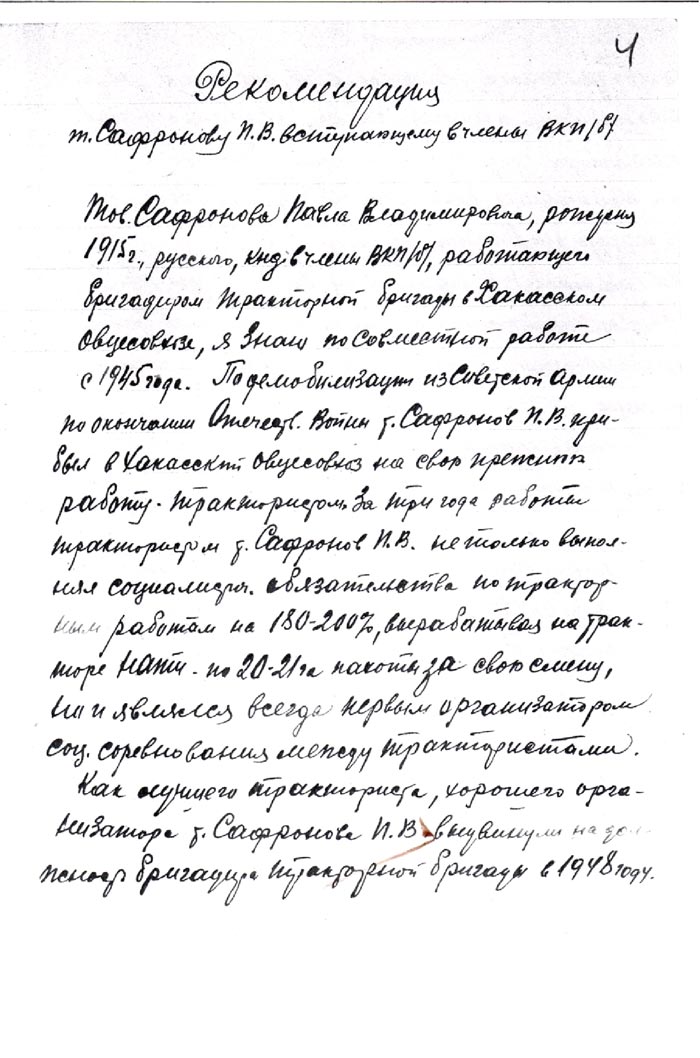 4
Рекомендация
т. Сафронову П.В. вступающему в члены ВКП/б/
Тов. Сафронова Павла Владимировича, рождения
1915г., русского, канд. в члены ВКП/б/, работающего
бригадиром тракторной бригады в Хакасском
Овцесовхозе, я знаю по совместной работе
с 1945 года. По демобилизации из Советской Армии
по окончании Отечеств. Войны т. Сафронов П.В. при-
был в Хакасский Овцесовхоз на свою прежнюю
работу - трактористом. За три года работы
трактористом т. Сафронов П.В. не только выпол-
нял социалистич. обязательства по трактор-
ным работам на 180-200%, вырабатывая на трак-
торе Нати - по 20-21 га пахоты за свою смену,
но и являлся всегда первым организатором
соц. соревнования между трактористами.
Как лучшего тракториста, хорошего орга-
низатора т. Сафронова П.В. выдвинули на дол-
жность бригадира тракторной бригады в 1948 году.